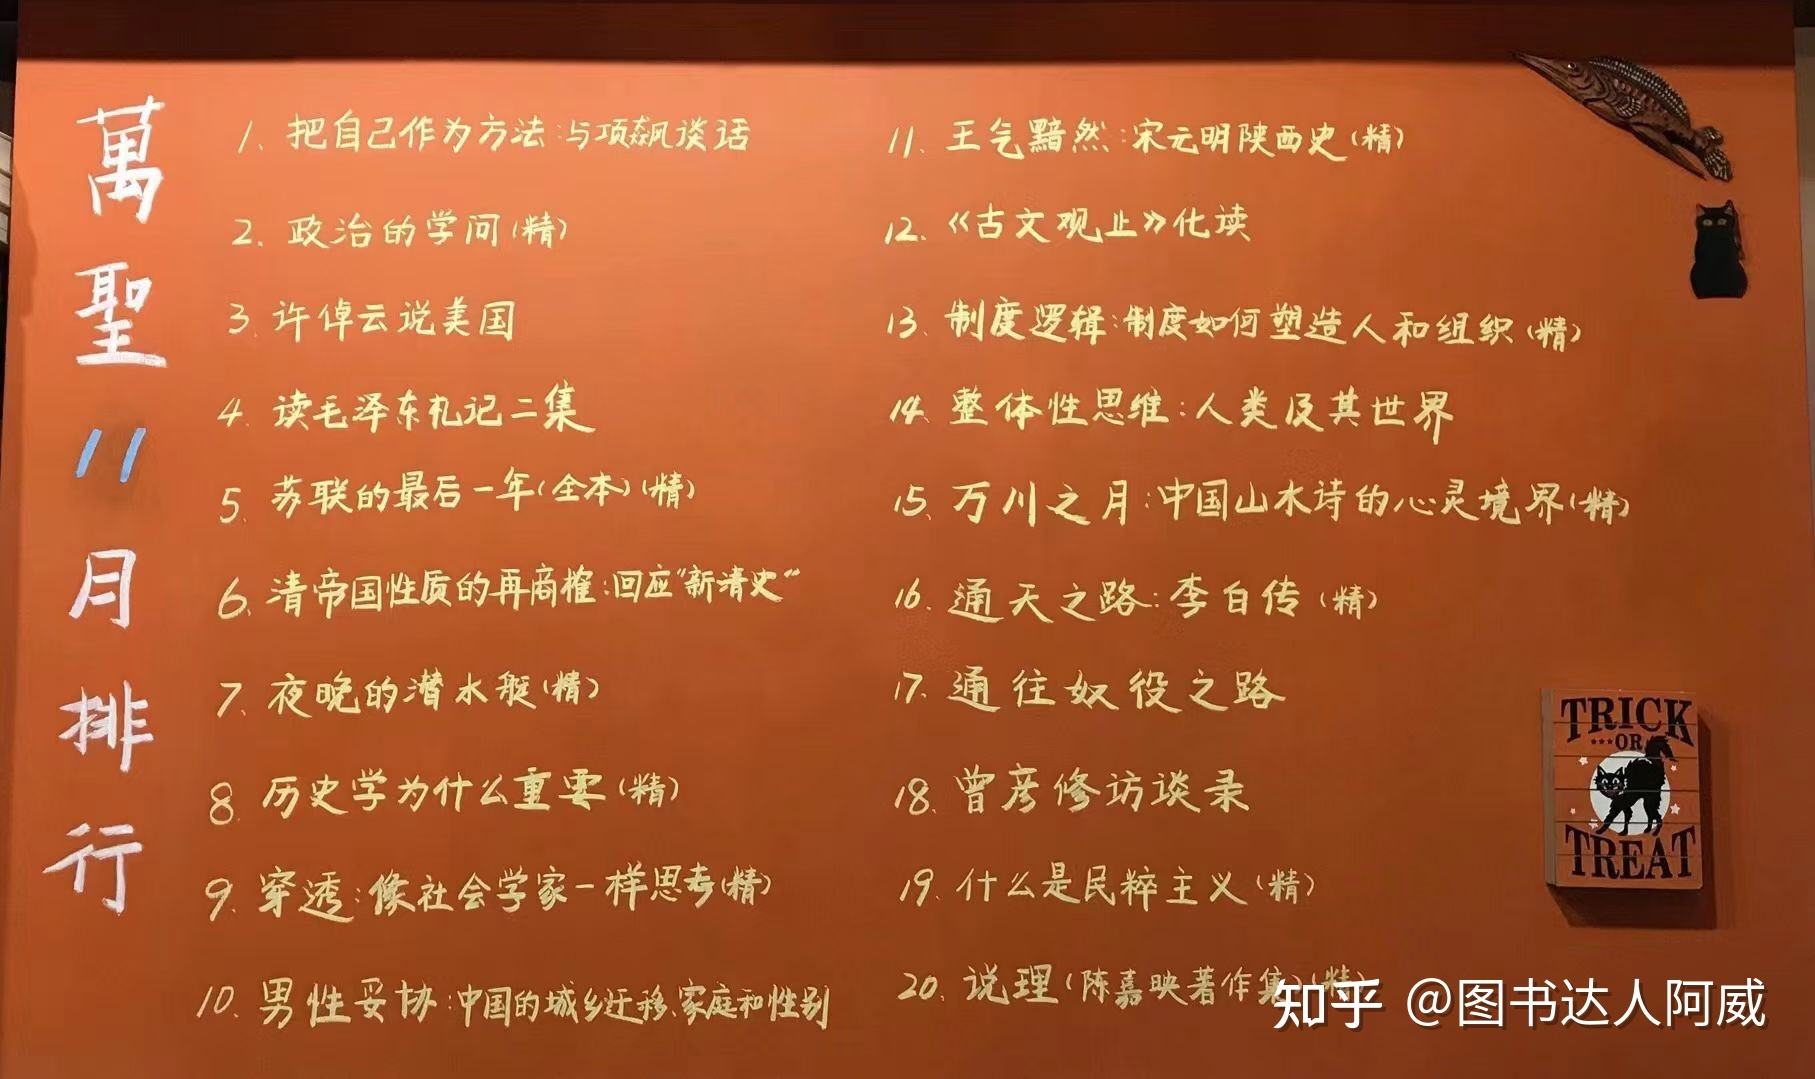 萬聖11月排行
1. 把自己作为方法:与项飙谈话
2. 政治的学问(精)
3. 许倬云说美国
4. 读毛泽东札记二集
5. 苏联的最后一年(全本)(精)
6. 清帝国性质的再商榷:回应"新清史"
7. 夜晚的潜水艇(精)
8. 历史学为什么重要(精)
9. 穿透:像社会学家一样思考(精)
10. 男性妥协:中国的城乡迁移、家庭和性别
11. 王气黯然:宋元明陕西史(精)
12.《古文观止》化读
13. 制度逻辑:制度如何塑造人和组织(精)
14. 整体性思维:人类及其世界
15. 万川之月:中国山水诗的心灵境界(精)
16. 通天之路:李白传(精)
17. 通往奴役之路
18. 曾彦修访谈录
19. 什么是民粹主义(精)
20. 说理(陈嘉映著作集)(精)
TRICK
OR
TREAT
知乎 @图书达人阿威